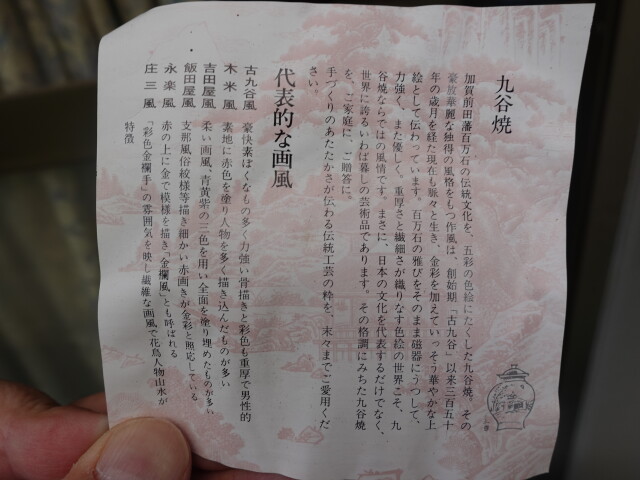 九谷焼
加賀前田藩百万石の伝統文化を、五彩の色絵にたくした九谷焼。その
豪放華麗な独得の風格をもつ作風は、創始期「古九谷」以来三百五十
年の歳月を経た現在も脈々と生き、金彩を加えていっそう華やかな上
絵として伝わっています。百万石の雅びをそのまま磁器にうつして、
力強く、また優しく、重厚さと繊細さが織りなす色絵の世界こそ、九
谷焼ならではの風情です。まさに、日本の文化を代表するだけでなく、
世界に誇るいわば暮しの芸術品であります。その格調にみちた九谷焼
を、ご家庭に、ご贈答に。
手づくりのあたたかさが伝わる伝統工芸の粋を、末々までご愛用くだ
さい。
代表的な画風
古九谷風 豪快素ぼくなもの多く力強い骨描きと彩色も重厚で男性的
木米風 素地に赤色を塗り人物を多く描き込んだものが多い
吉田屋風 柔い画風、青黄紫の三色を用い全面を塗り埋めたものが多い
飯田屋風 支那風俗紋様等描き細かい赤画きが金彩と照応している
永楽風 赤の上に金で模様を描き「金襴風」とも呼ばれる
庄三風 「彩色金襴手」の雰囲気を映し繊細な画風で花鳥人物山水が
特徴